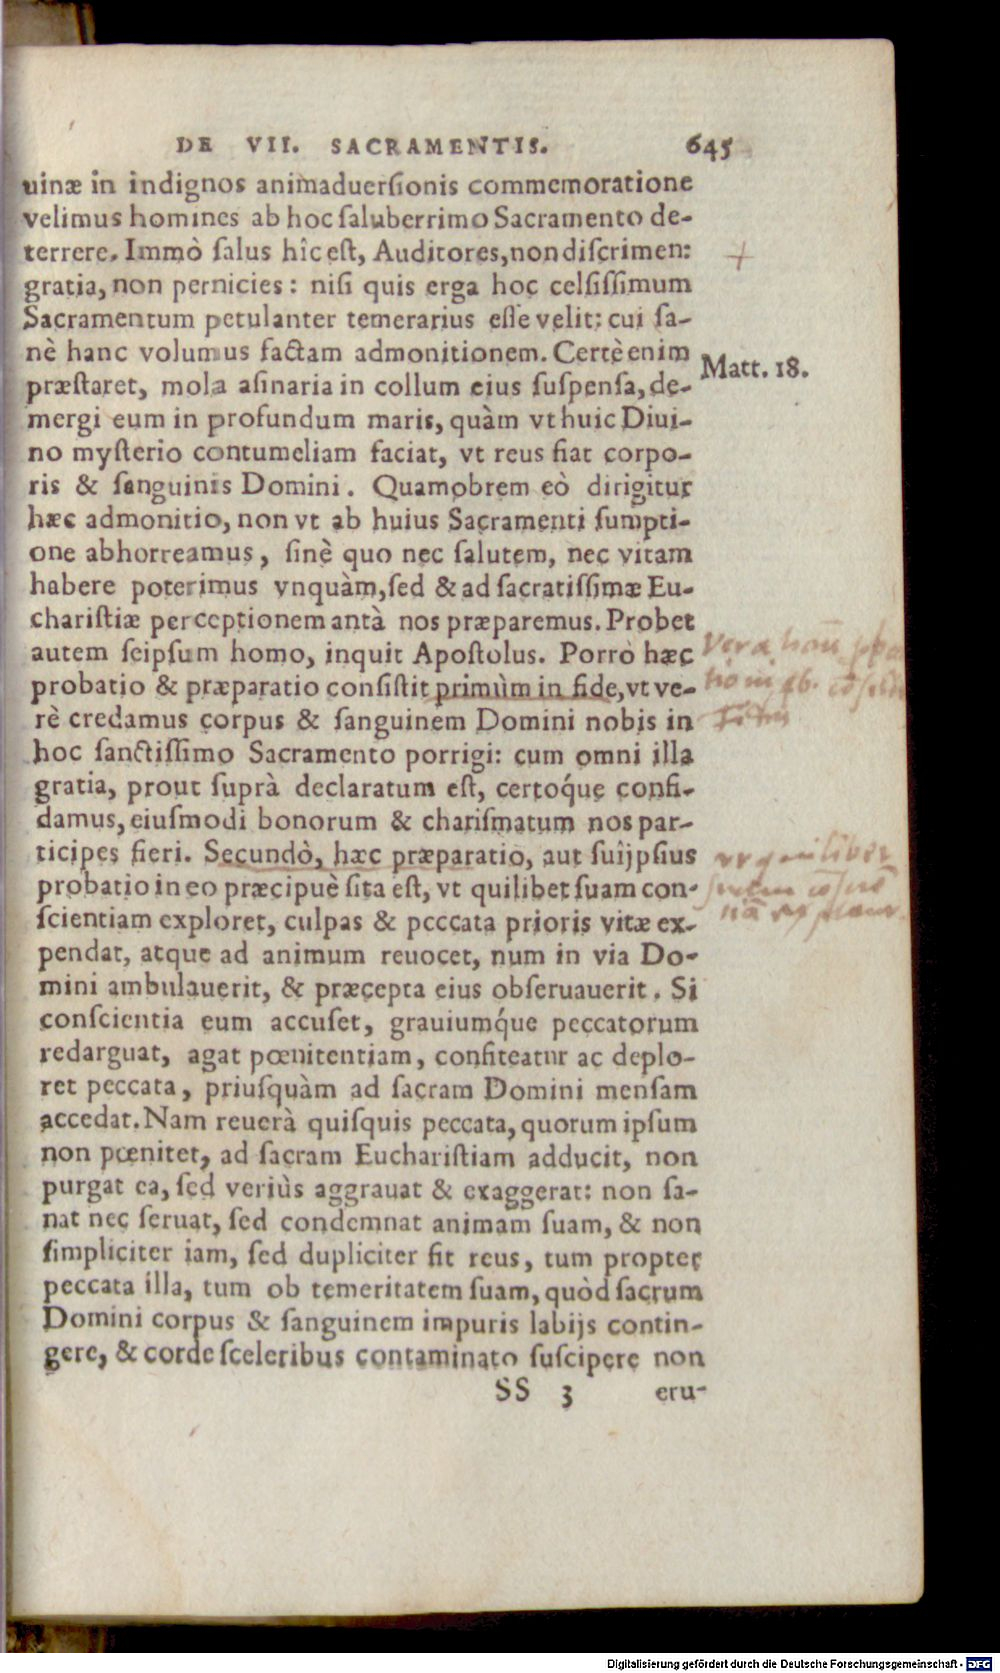 DE VII. SACRAMENTIS. 645
uinæ in indignos animaduerſionis commemoratione
velimus homines ab hoc ſaluberrimo Sacramento de-
terrere. Immò ſalus hîc eſt, Auditores, non diſcrimen:
gratia, non pernicies: niſi quis erga hoc celſiſſimum
Sacramentum petulanter temerarius eſſe velit: cui ſa-
nè hanc volumus factam admonitionem. Certè enim
Matt. 18.
præſtaret, mola aſinaria in collum eius ſuſpenſa, de-
mergi eum in profundum maris, quàm vt huic Diui-
no myſterio contumeliam faciat, vt reus fiat corpo-
ris & ſanguinis Domini. Quamobrem eò dirigitur
hæc admonitio, non vt ab huius Sacramenti ſumpti-
one abhorreamus, ſinè quo nec ſalutem, nec vitam
habere poterimus vnquàm, ſed & ad ſacratiſſimæ Eu-
chariſtiæ perceptionem antà nos præparemus. Probet
autem ſeipſum homo, inquit Apoſtolus. Porrò hæc
probatio & præparatio conſiſtit primùm in fide, vt ve-
rè credamus corpus & ſanguinem Domini nobis in
hoc ſanctiſſimo Sacramento porrigi: cum omni illa
gratia, prout ſuprà declaratum eſt, certoq́ue confi-
damus, eiuſmodi bonorum & chariſmatum nos par-
ticipes fieri. Secundò, hæc præparatio, aut ſuijpſius
probatio in eo præcipuè ſita eſt, vt quilibet ſuam con-
ſcientiam exploret, culpas & peccata prioris vitæ ex-
pendat, atque ad animum reuocet, num in via Do-
mini ambulauerit, & præcepta eius obſeruauerit. Si
conſcientia eum accuſet, grauiumq́ue peccatorum
redarguat, agat pœnitentiam, confiteatur ac deplo-
ret peccata, priuſquàm ad ſacram Domini menſam
accedat. Nam reuerà quiſquis peccata, quorum ipſum
non pœnitet, ad ſacram Euchariſtiam adducit, non
purgat ea, ſed veriùs aggrauat & exaggerat: non ſa-
nat nec ſeruat, ſed condemnat animam ſuam, & non
ſimpliciter iam, ſed dupliciter fit reus, tum propter
peccata illa, tum ob temeritatem ſuam, quòd ſacrum
Domini corpus & ſanguinem impuris labijs contin-
gere, & corde ſceleribus contaminato ſuſcipere non
SS 3 eru-
Digitalisierung gefördert durch die Deutsche Forschungsgemeinschaft - DFG